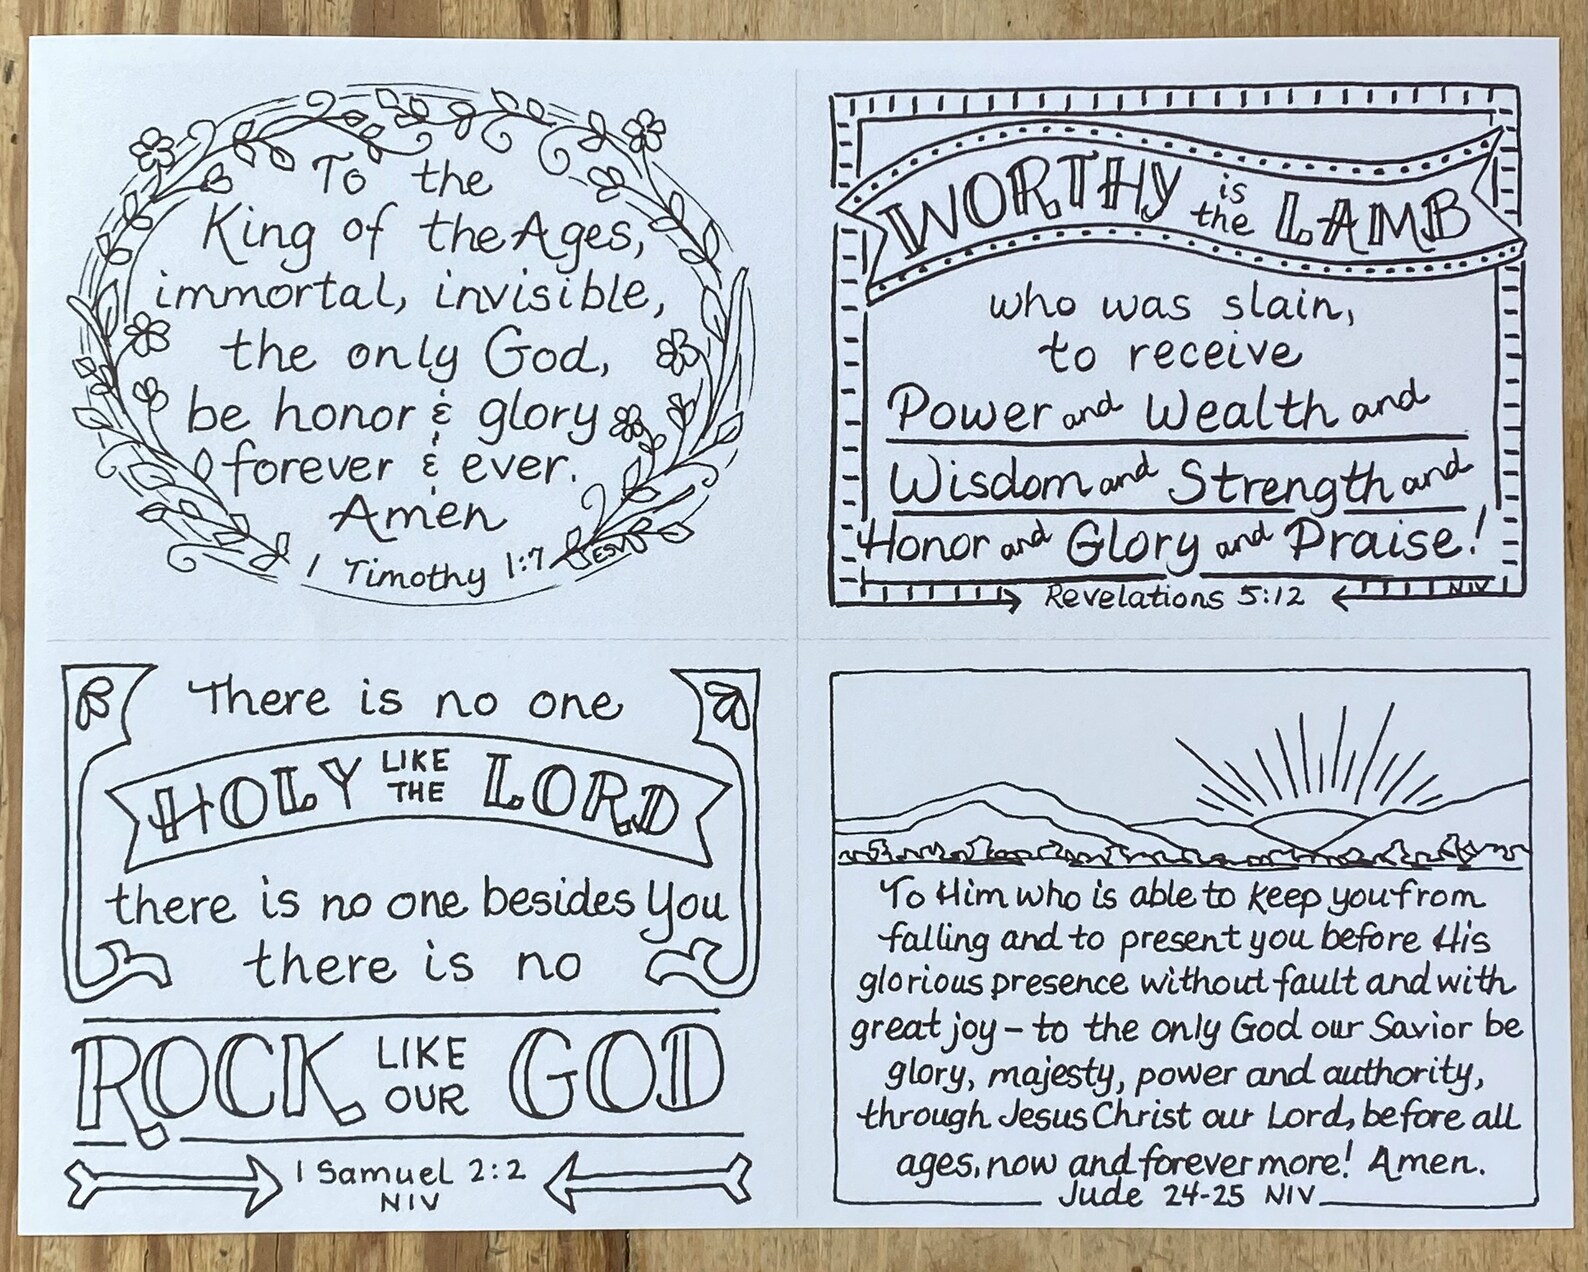 To the
King of the Ages,
immortal, invisible,
the only God,
be honor & glory
forever & ever.
Amen
1 Timothy 1:7
ESV
WORTHY is the LAMB
who was slain,
to receive
Power and Wealth and
Wisdom and Strength and
Honor and Glory and Praise!
Revelations 5:12
NIV
There is no one
HOLY LIKE THE LORD
there is no one besides You
there is no
ROCK LIKE OUR GOD
1 Samuel 2:2
NIV
To Him who is able to keep you from
falling and to present you before His
glorious presence without fault and with
great joy – to the only God our Savior be
glory, majesty, power and authority,
through Jesus Christ our Lord, before all
ages, now and forevermore! Amen.
Jude 24-25 NIV